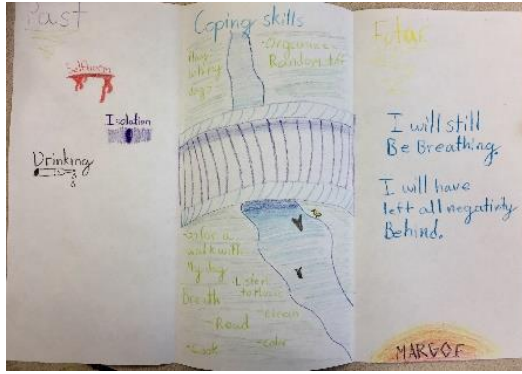 Past
Selfharm
Isolation
Drinking
Coping skills
Organize
Random stuff
walk with
my dog
Breath
Listen
to Music
-Read
-clean
-Cook
-Color
Futur
I will still
Be Breathing.
I will have
left all negativity
Behind.
MARGOF